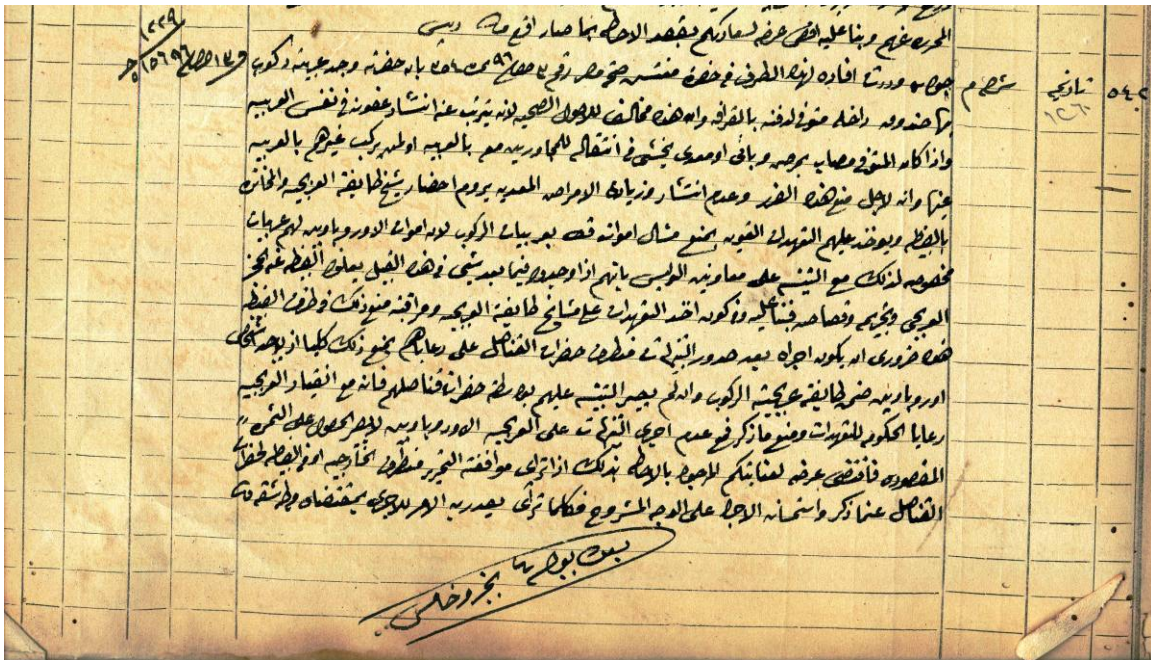 المحرره عنهم وبنا عليه اقتضى عرضه لسعادتكم بقصد الاحاطه بما صار افندم
١٢٢٩
٥٤٢ تاريخه وردت افاده لهذا الطرف من حضرة مفتش صحة مصر رقم ٣ ٩٦ نمرة ٣٥٤ بان حضرته وجد عربية ركوب
١٥٦٩٦
بها صندوق داخله متوفى لدفنه بالقرافه وان هذه مخالف للاصول الصحيه لانه يترتب عنه انتشار عفونه فى نفس العربيه
واذا كان المتوفى مصاب بمرض وبائى او معدى يخشى من انتقاله للمجاورين مع بالعربيه او لمن يركب غيرهم بالعربيه
عينها وانه لاجل منع هذه الضرر وعدم انتشار وزيادة الامراض المعديه يروم احضار شيخ طايفة العربجيه والمخاتره
بالضبطيه ويوخذ عليهم التعهدات القويه بمنع مشال اموات قط بعربيات الركوب لان اموات الاوروباويين لهم عربيات
مخصوصه لذلك مع التنبيه على معاونين البوليس بانهم اذا وجدوا فيما بعد شى من هذا القبيل يعلموا الضبطيه عنه لحجز
العربجى وتجريم وقصاصه فبنا عليه وكون اخذ التعهدات على مشايخ طايفة العربجيه ومراقبة منع ذلك من طرف الضبطيه
هذا ضرورى ان يكون اجراه بعد صدور التنبيهات من طرف حضرات القناصل على رعاياهم بمنع ذلك كليا اذ يوجد اشخاص
اوروباويين ضمن طايفة عربجية الركوب وان لم يصير التنبيه عليهم بواسطة حضرات قناصلهم فانه مع انقياد العربجيه
رعايا الحكومه للتعهدات ومنع ماذكر فمع عدم اجرى التنبيهات على العربجيه الاوروباويين لا يصير الحصول على الثمره
المقصوده فاقتضى عرضه لعنايتكم للاحاطه بذلك اذا تراى موافقة التحرير من طرف الخارجيه او من الضبطيه لحضرات
القناصل عما ذكر واستحسان الاجرا على الوجه المشروح فكلما تراى يصدر به الامر للاجرى بمقتضاه